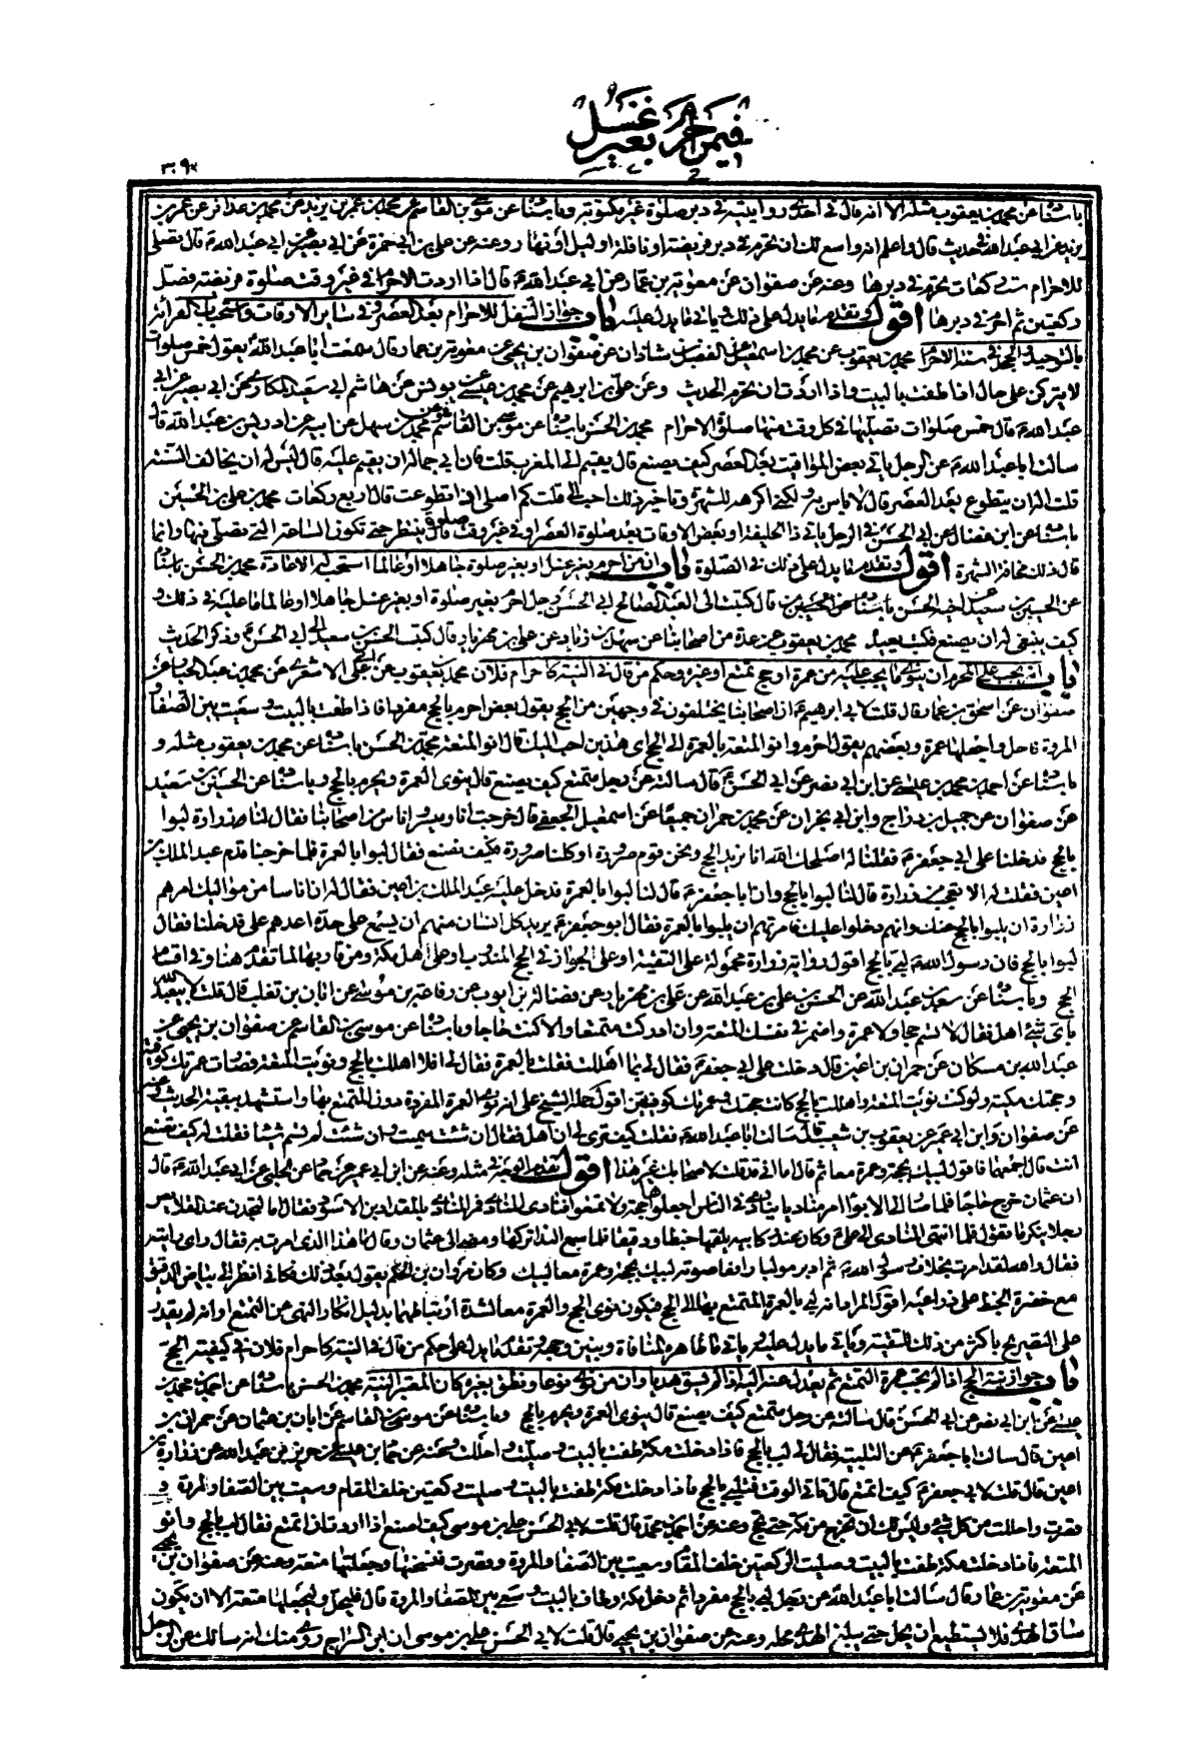 فيمن احرم بغير غسل
٣٠٩
باسنا عن محمد بن يعقوب مثله الا انه قال في احدى روايتيه في دبر صلوة غير مكتوبة وباسنا عن موسى بن القاسم عن محمد بن عمر بن يزيد عن محمد بن عذافر عن عمر بن
يزيد عن ابي عبد الله في حديث قال واعلم انه واسع لك ان تحرم في دبر فريضة او نافلة او ليل او نهار وعنه عن علي بن ابي حمزة عن ابي بصير عن ابي عبد الله قال تصلي
للاحرام ست ركعات تحرم في دبرها وعنه عن صفوان عن معوية بن عمار عن ابي عبد الله قال اذا اردت الاحرام في غير وقت صلوة فريضة فصل
ركعتين ثم احرم في دبرها اقول وتقدم ما يدل على ذلك وياتي ما يدل عليه باب جواز التنفل للاحرام بعد العصر وفي ساير الاوقات واستحباب القرائة
بالتوحيد والجحد في سنة الاحرام محمد بن يعقوب عن محمد بن اسمعيل عن الفضل بن شاذان عن صفوان بن يحيى عن معوية بن عمار قال سمعت ابا عبد الله يقول خمس صلوات
لا يتركن على حال اذا طفت بالبيت واذا اردت ان تحرم الحديث وعن علي بن ابراهيم عن محمد بن عيسى عن يونس عن هاشم ابي سعيد المكاري عن ابي بصير عن ابي
عبد الله قال خمس صلوات تصليها في كل وقت منها صلوة الاحرام محمد بن الحسن باسنا عن موسى بن القاسم عن محمد بن سهل عن ابيه عن ادريس بن عبد الله قال
سالت ابا عبد الله عن الرجل ياتي بعض المواقيت بعد العصر كيف يصنع قال يقيم الى المغرب قلت فان ابى جماله ان يقيم عليه قال ليس له ان يخالف السنة
قلت اله ان يتطوع بعد العصر قال لا باس به ولكني اكرهه للشهرة وتاخير ذلك احب الي قلت كم اصلي اذا تطوعت قال اربع ركعات محمد بن علي بن الحسين
باسنا عن ابن فضال عن ابي الحسن في الرجل ياتي ذا الحليفة او بعض الاوقات بعد صلوة العصر او في غير وقت صلوة قال ينتظر حتى تكون الساعة التي تصلى فيها وانما
قال ذلك مخافة الشهرة اقول وتقدم ما يدل على ذلك في الصلوة باب ان من احرم بغير غسل او بغير صلوة جاهلا او عالما استحب له الاعادة محمد بن الحسن باسنا
عن الحسين بن سعيد عن اخيه الحسن قال كتبت الى العبد الصالح ابي الحسن رجل احرم بغير صلوة او بغير غسل جاهلا او عالما ما عليه في ذلك و
كيف ينبغي له ان يصنع فكتب يعيد محمد بن يعقوب عن عدة من اصحابنا عن سهل بن زياد عن علي بن مهزيار قال كتب الحسن بن سعيد الى ابي الحسن وذكر الحديث
باب انه يجب على المحرم ان ينوي ما يجب عليه من عمرة او حج تمتع او غيره وحكم من قال في النية كاحرام فلان محمد بن يعقوب عن ابي علي الاشعري عن محمد بن عبد الجبار عن
صفوان عن اسحق بن عمار قال قلت لابي ابراهيم ان اصحابنا يختلفون في وجهين من الحج يقول بعض احرم بالحج مفردا فاذا طفت بالبيت وسعيت بين الصفا و
المروة فاحل واجعلها عمرة وبعضهم يقول احرم وانو المتعة بالعمرة الى الحج اي هذين احب اليك قال انو المتعة محمد بن الحسن باسنا عن محمد بن يعقوب مثله و
باسنا عن احمد بن محمد بن عيسى عن ابن ابي نصر عن ابي الحسن قال سالته عن رجل متمتع كيف يصنع قال ينوي العمرة ويحرم بالحج وباسنا عن الحسين بن سعيد
عن صفوان عن جميل بن دراج وابن ابي نجران عن محمد بن حمران جميعا عن اسمعيل الجعفي قال خرجت انا وميسر واناس من اصحابنا فقال لنا زرارة لبوا
بالحج فدخلنا على ابي جعفر فقلنا له اصلحك الله انا نريد الحج ونحن قوم صرورة او كلنا صرورة فكيف نصنع فقال لبوا بالعمرة فلما خرجنا قدم عبد الملك بن
اعين فقلت له الا تعجب من زرارة قال لنا لبوا بالحج وان ابا جعفر قال لنا لبوا بالعمرة فدخل عليه عبد الملك بن اعين فقال له ان اناسا من مواليك امرهم
زرارة ان يلبوا بالحج عنك وانهم دخلوا عليك فامرتهم ان يلبوا بالعمرة فقال ابو جعفر يريد كل انسان منهم ان يسمع على حدة اعدهم علي فدخلنا فقال
لبوا بالحج فان رسول الله لبى بالحج اقول رواية زرارة محمولة على التقية او على الجواز في الحج المندوب او على اهل مكة ومن قاربها لما تقدم هنا وفي اقسام
الحج وباسنا عن سعد بن عبد الله عن الحسن بن علي بن عبد الله عن علي بن مهزيار عن فضالة بن ايوب عن رفاعة بن موسى عن ابان بن تغلب قال قلت لابي عبد الله
باي شيء اهل فقال لا تسم حجا ولا عمرة واضمر في نفسك المتعة وان ادركت متمتعا والا كنت حاجا وباسنا عن موسى بن القاسم عن صفوان بن يحيى عن
عبد الله بن مسكان عن حمران بن اعين قال دخلت على ابي جعفر فقال لي بما اهللت فقلت بالعمرة فقال لي افلا اهللت بالحج ونويت المتعة فصارت عمرتك كوفية
وحجتك مكية ولو كنت نويت المتعة واهللت بالحج كانت حجتك وعمرتك كوفيتين اقول حمله الشيخ على انه نوى العمرة المفردة دون المتمتع بها واستشهد ببقية الحديث وعنه
عن صفوان وابن ابي عمير عن يعقوب بن شعيب قال سالت ابا عبد الله فقلت كيف ترى لي ان اهل فقال ان شئت سميت وان شئت لم تسم شيئا فقلت له كيف تصنع
انت قال اجمعهما فاقول لبيك بحجة وعمرة معا ثم قال اما اني قد قلت لاصحابك غير هذا اقول تقدم الوجه في مثله وعنه عن ابن ابي عمير عن حماد عن الحلبي عن ابي عبد الله قال
ان عثمان خرج حاجا فلما صار الى الابواء امر مناديا ينادي في الناس اجعلوها حجة ولا تمتعوا فنادى المنادي فمر المنادي بالمقداد بن الاسود فقال اما لتجدن عند القلايص
رجلا ينكر ما تقول فلما انتهى المنادي الى علي وكان عند ركائبه يلقمها خبطا ودقيقا فلما سمع النداء تركها ومضى الى عثمان وقال ما هذا الذي امرت به فقال راي رايته
فقال والله لقد امرت بخلاف رسول الله ثم ادبر موليا رافعا صوته لبيك بحجة وعمرة معا لبيك وكان مروان بن الحكم يقول بعد ذلك فكاني انظر الى بياض الدقيق
مع خضرة الخبط على ذراعيه اقول المراد انه لبى بالعمرة المتمتع بها الى الحج فيكون نوى الحج والعمرة معا لشدة ارتباطهما بدليل انكار النهي عن التمتع او انه لم يقدر
على التصريح باكثر من ذلك للتقية وياتي ما يدل عليه وياتي ما ظاهره المنافاة ونبين وجهه وتقدم ما يدل على حكم من قال في النية كاحرام فلان في كيفية الحج
باب جواز نية الحج اذا لم يجب عمرة التمتع ثم يعدل عنه اليها اذا لم يسق هديا وان من نوى نوعا ونطق بغيره كان المعتبر النية محمد بن الحسن باسنا عن احمد بن محمد بن
عيسى عن ابن ابي نصر عن ابي الحسن قال سالته عن رجل متمتع كيف يصنع قال ينوي العمرة ويحرم بالحج وباسنا عن موسى بن القاسم عن ابان بن عثمان عن حمران بن
اعين قال سالت ابا جعفر عن التلبية فقال لي لب بالحج فاذا دخلت مكة طفت بالبيت وصليت واحللت وعنه عن حماد بن عيسى عن حريز بن عبد الله عن زرارة بن
اعين قال قلت لابي جعفر كيف اتمتع قال تاتي الوقت فتلبي بالحج فاذا دخلت مكة طفت بالبيت وصليت ركعتين خلف المقام وسعيت بين الصفا والمروة و
قصرت واحللت من كل شيء وليس لك ان تخرج من مكة حتى تحج وعنه عن احمد بن محمد قال قلت لابي الحسن علي بن موسى كيف اصنع اذا اردت ان اتمتع فقال لب بالحج وانو
المتعة فاذا دخلت مكة طفت بالبيت وصليت الركعتين خلف المقام وسعيت بين الصفا والمروة وقصرت فنسختها وجعلتها متعة وعنه عن صفوان بن يحيى
عن معوية بن عمار قال سالت ابا عبد الله عن رجل لبى بالحج مفردا ثم دخل مكة وطاف بالبيت وسعى بين الصفا والمروة قال فليحل وليجعلها متعة الا ان يكون
ساق الهدي فلا يستطيع ان يحل حتى يبلغ الهدي محله وعنه عن صفوان بن يحيى قال قلت لابي الحسن علي بن موسى ان ابن السراج روى عنك انه سالك عن الرجل